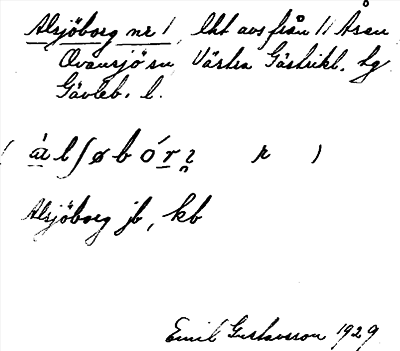 Alsjöborg nr 1, lht avs från 1:1 Åsen
Ovansjö sn, Västra Gästrikl. hg
Gävleb. l.
Alsjöborg jb, kb
Emil Gustavsson 1929